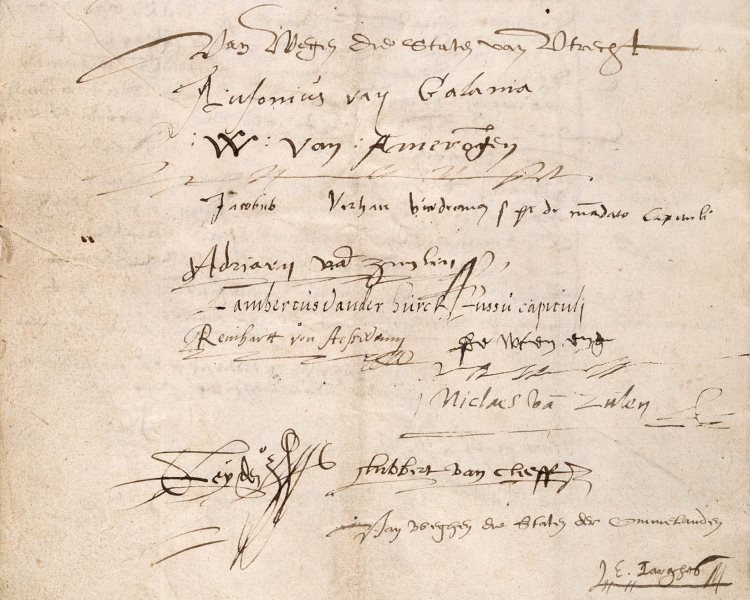 Van Wegen die Staten van Vtrecht
Ausonius van Galama
: W : van : Amerongen
Jacobus Verhaer de mandato Capituli
Adriaen van Zuylen
Lambertus vander burch Jussu capituli
Reinhart von
Niclaes van Zulen
Leyden Lubbert van Cleeff
Van weghen die Staten der Ommelanden
E. Jarghes